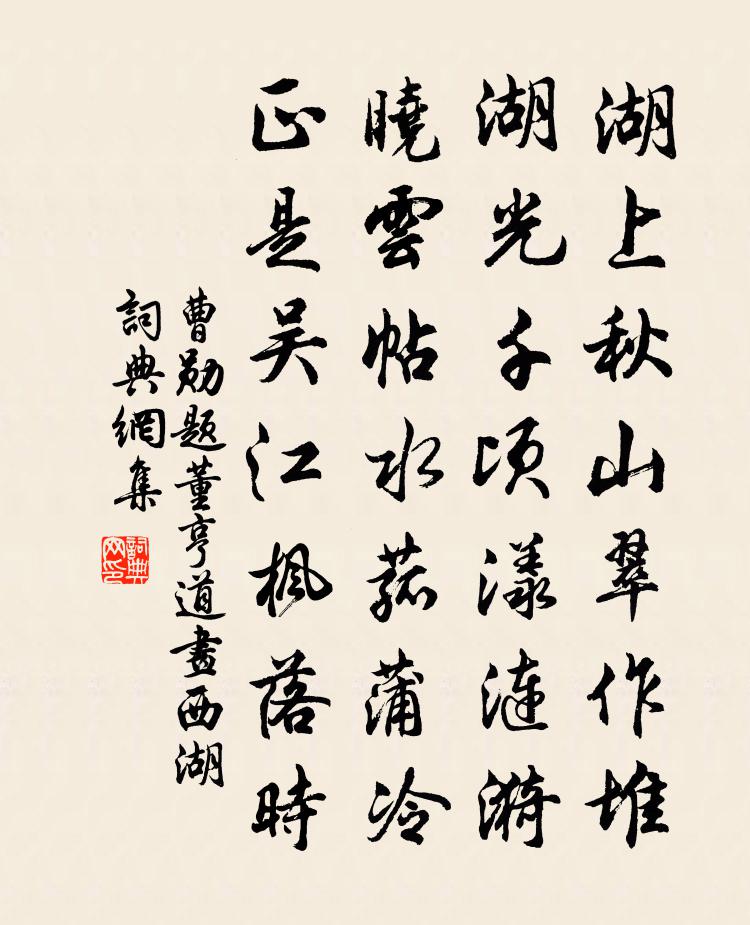 湖上秋山翠作堆
湖光千頃漾漣漪
曉雲帖水菰蒲冷
正是吴江楓落時
曹勛題董亨道畫西湖
詞典網集
詞典
网印